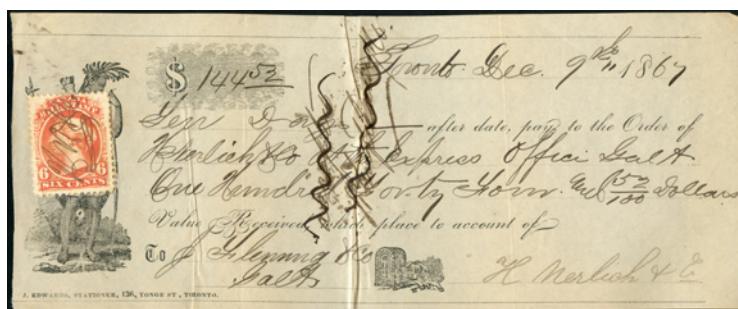 $ 144 52
Toronto Dec. 9th 1867
Ten Days after date, pay to the Order of
H Nerlich & Co at Express Office Galt
One Hundred Forty Four and 52/100 Dollars
Value Received, which place to account of
To J Fleming & Co
Galt
H. Nerlich & Co
6 6
SIX CENTS
J. EDWARDS, STATIONER, 136, YONGE ST, TORONTO.